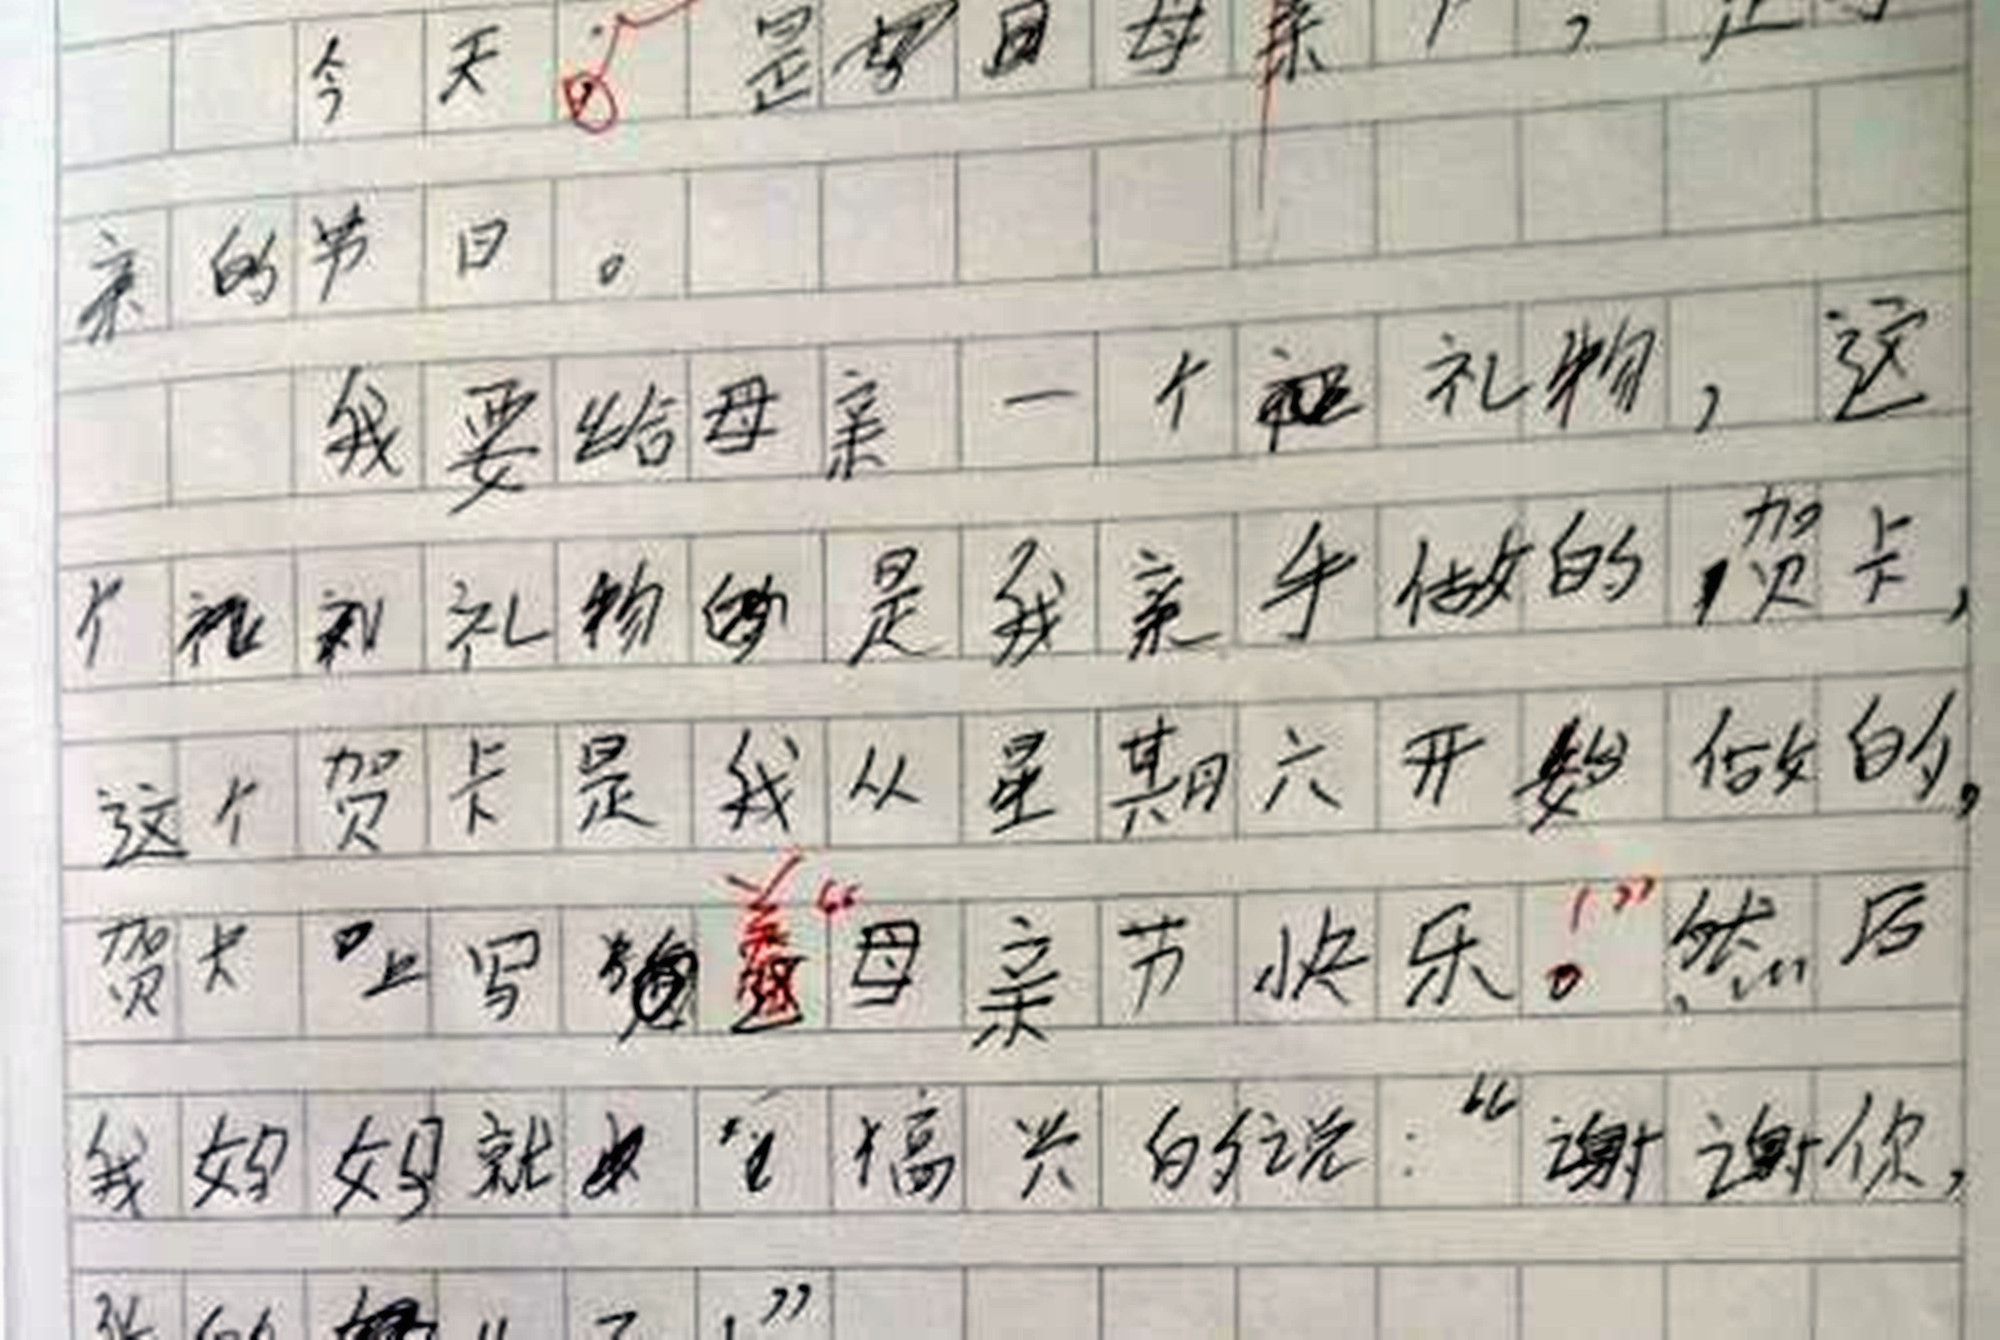 今天是母亲节,
亲的节日。
我要给母亲一个礼物,这
个礼物是我亲手做的贺卡,
这个贺卡是我从星期六开始做的,
贺卡上写着“母亲节快乐!”然后
我妈妈就搞兴的说:“谢谢你,